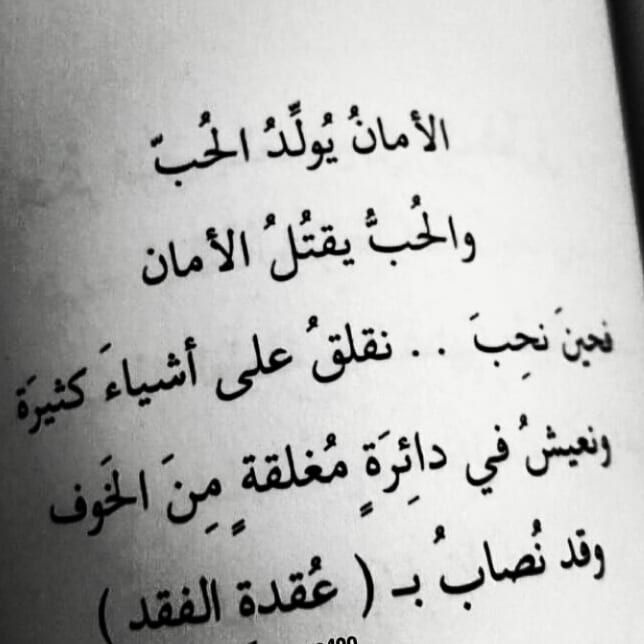 الأمانُ يُولِّدُ الحُبّ
والحُبُّ يقتُلُ الأمان
نحينَ نحِبَ . . نقلقُ على أشياءَ كثيرَة
ونعيشُ في دائِرَةٍ مُغلقةٍ مِنَ الخَوف
وقد نُصابُ بـ ( عُقدة الفقد )